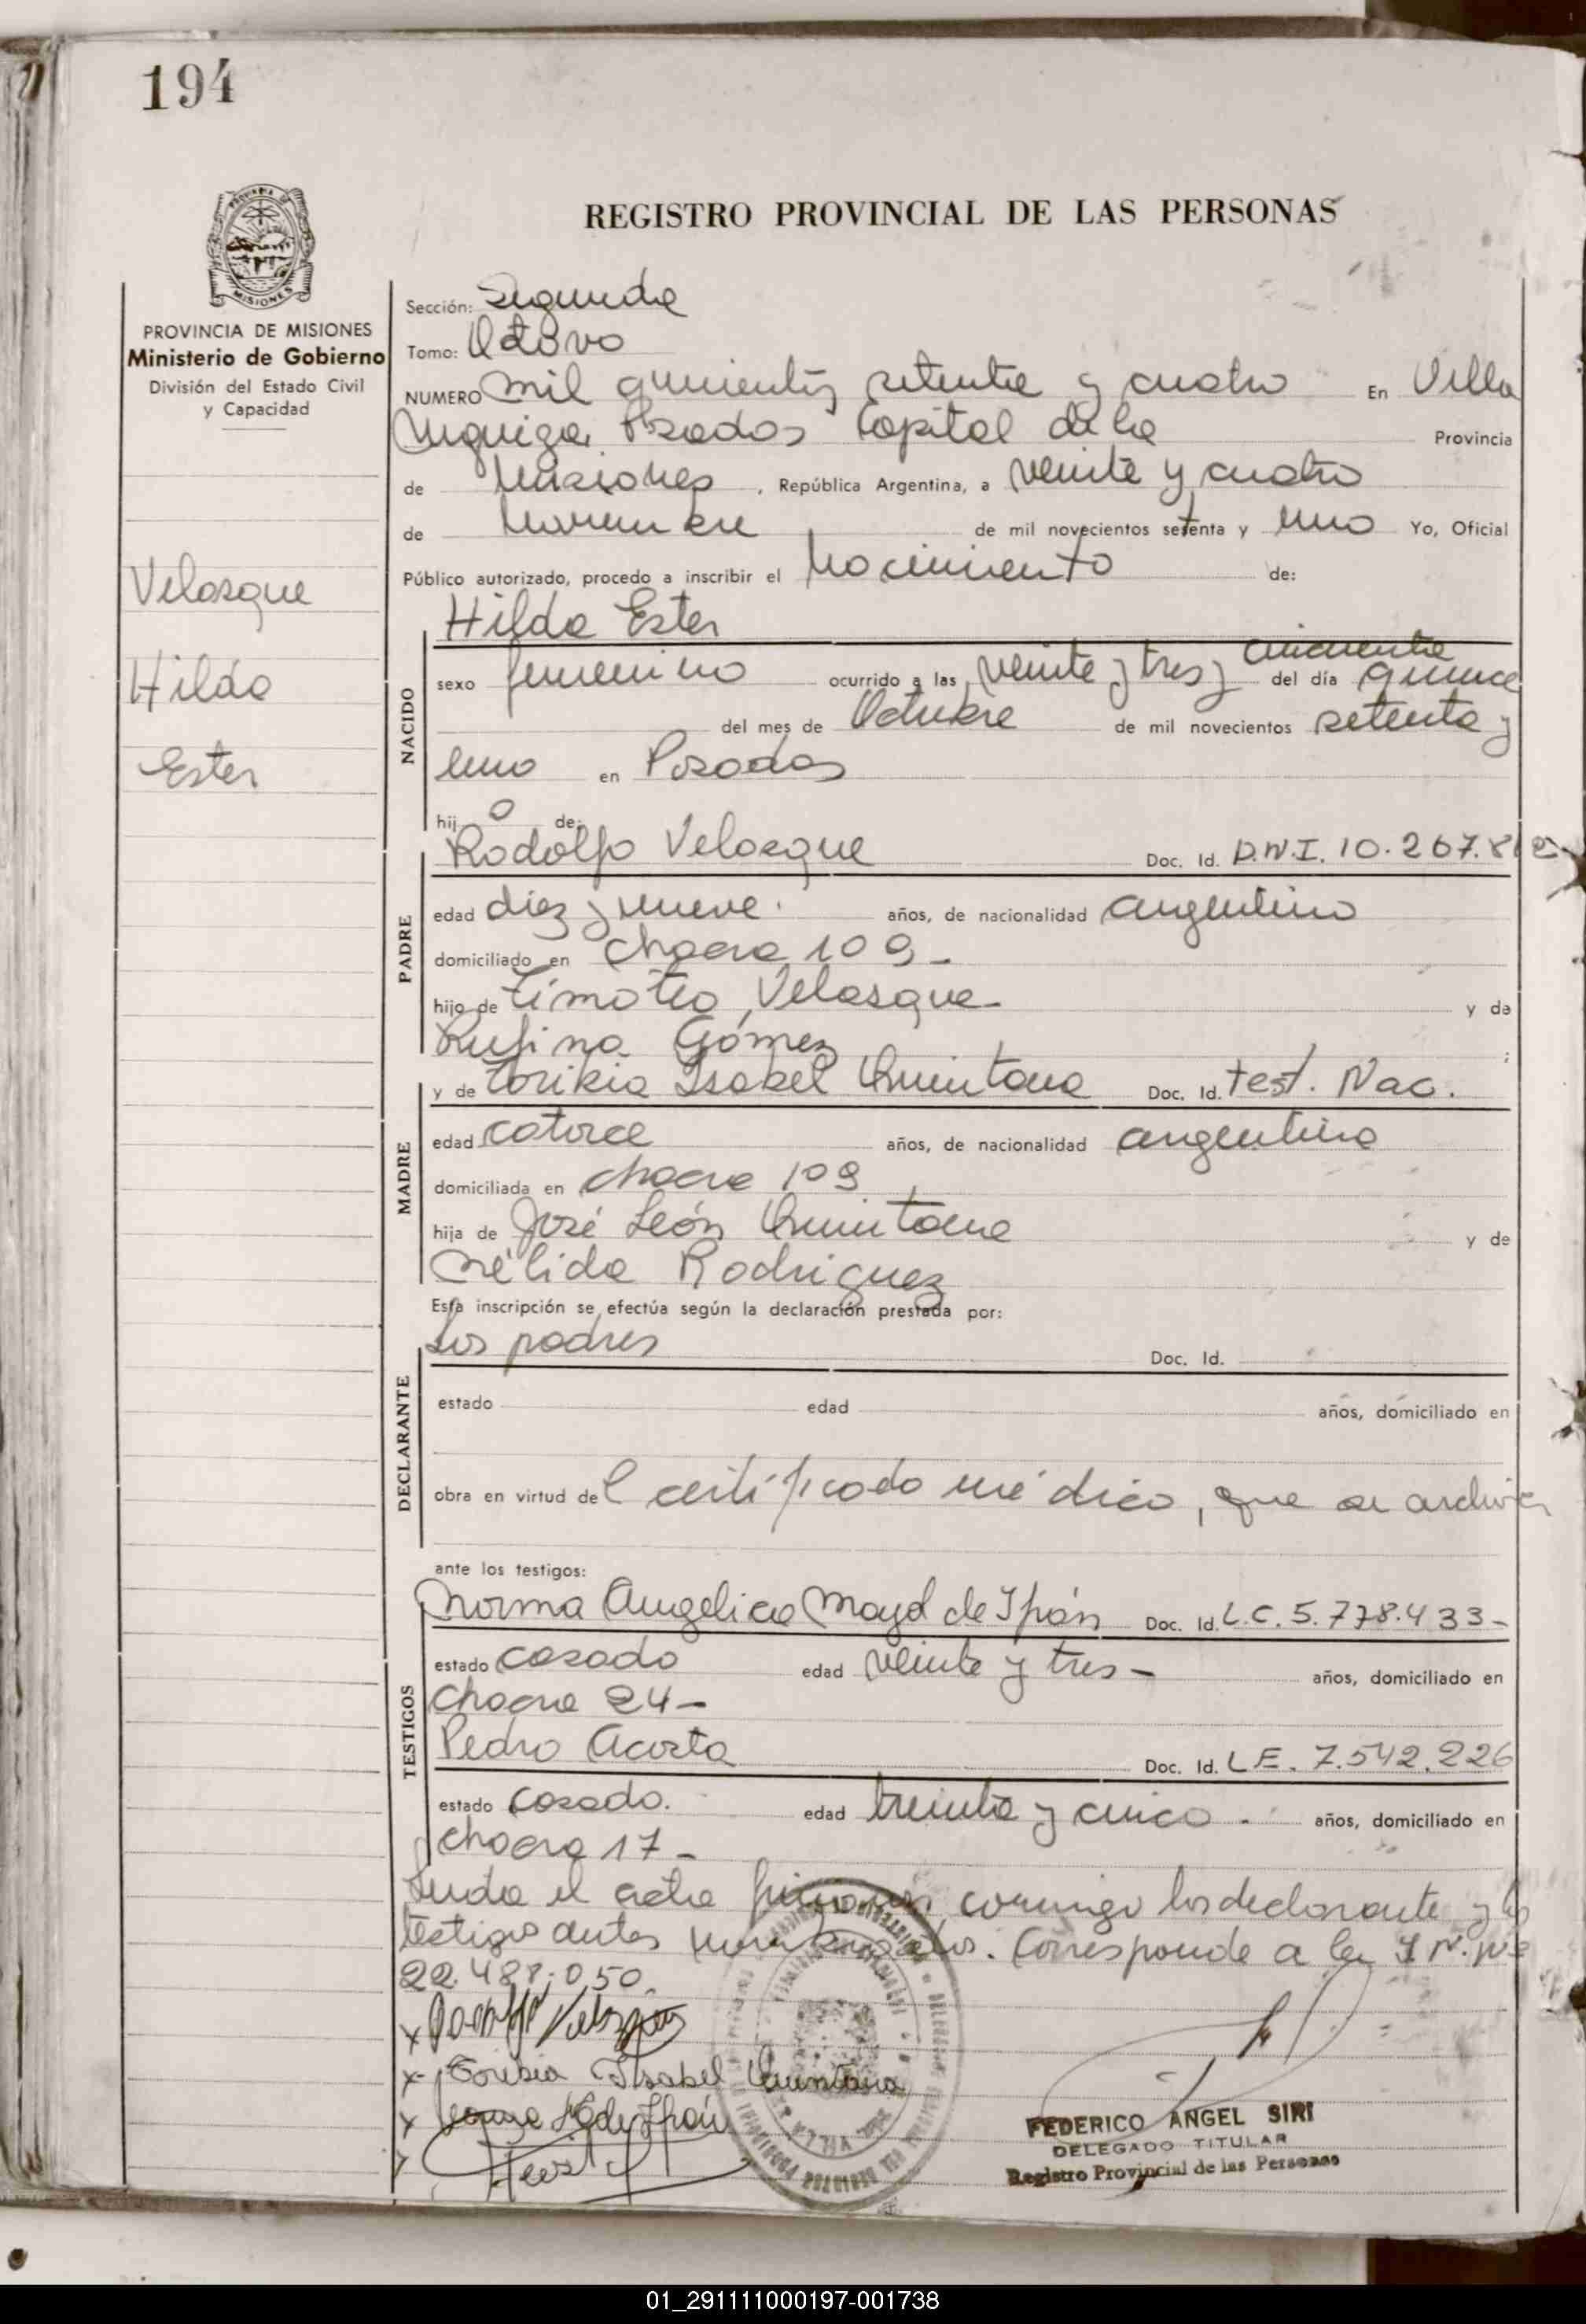 194
REGISTRO PROVINCIAL DE LAS PERSONAS
MISIONES
PROVINCIA DE MISIONES
Ministerio de Gobierno
División del Estado Civil
y Capacidad
Velasque
Hilda
Ester
Sección: Segunda
Tomo: Octavo
NUMERO mil quinientos setenta y cuatro En Villa
Urquiza, Posadas Capital de la Provincia
de Misiones, República Argentina, a veinte y cuatro
de Noviembre de mil novecientos setenta y uno Yo, Oficial
Público autorizado, procedo a inscribir el Nacimiento de:
Hilda Ester
NACIDO
cincuenta
sexo femenino ocurrido a las veinte y tres y del día quince
del mes de Octubre de mil novecientos setenta y
uno en Posadas
hija de:
Rodolfo Velasque Doc. Id. D.N.I. 10.267.812
PADRE
edad diez y nueve. años, de nacionalidad argentino
domiciliado en Chacra 109-
hijo de Timoteo Velasque- y de
Rufina Gómez ;
y de Toribia Isabel Quintana Doc. Id. Test. Nac.
MADRE
edad catorce años, de nacionalidad argentina
domiciliada en chacra 109
hija de José León Quintana y de
Nélida Rodriguez
Esta inscripción se efectúa según la declaración prestada por:
Los padres Doc. Id.
DECLARANTE
estado edad años, domiciliado en
obra en virtud del certificado médico, que se archiva
ante los testigos:
Norma Angelica Mayol de Ifrán Doc. Id. L.C. 5.778.433-
TESTIGOS
estado casada edad veinte y tres- años, domiciliado en
Chacra 24-
Pedro Acosta Doc. Id. L.E. 7.542.226
estado casado. edad treinta y cinco. años, domiciliado en
chacra 17-
Leida el acta firmaron conmigo los declarante y los
testigos antes nombrados. Corresponde a la
22.488.050.
x Rodolfo Velasque
x Toribia Isabel Quintana
x
FEDERICO ANGEL SIRI
DELEGADO TITULAR
Registro Provincial de las Personas
01_291111000197-001738